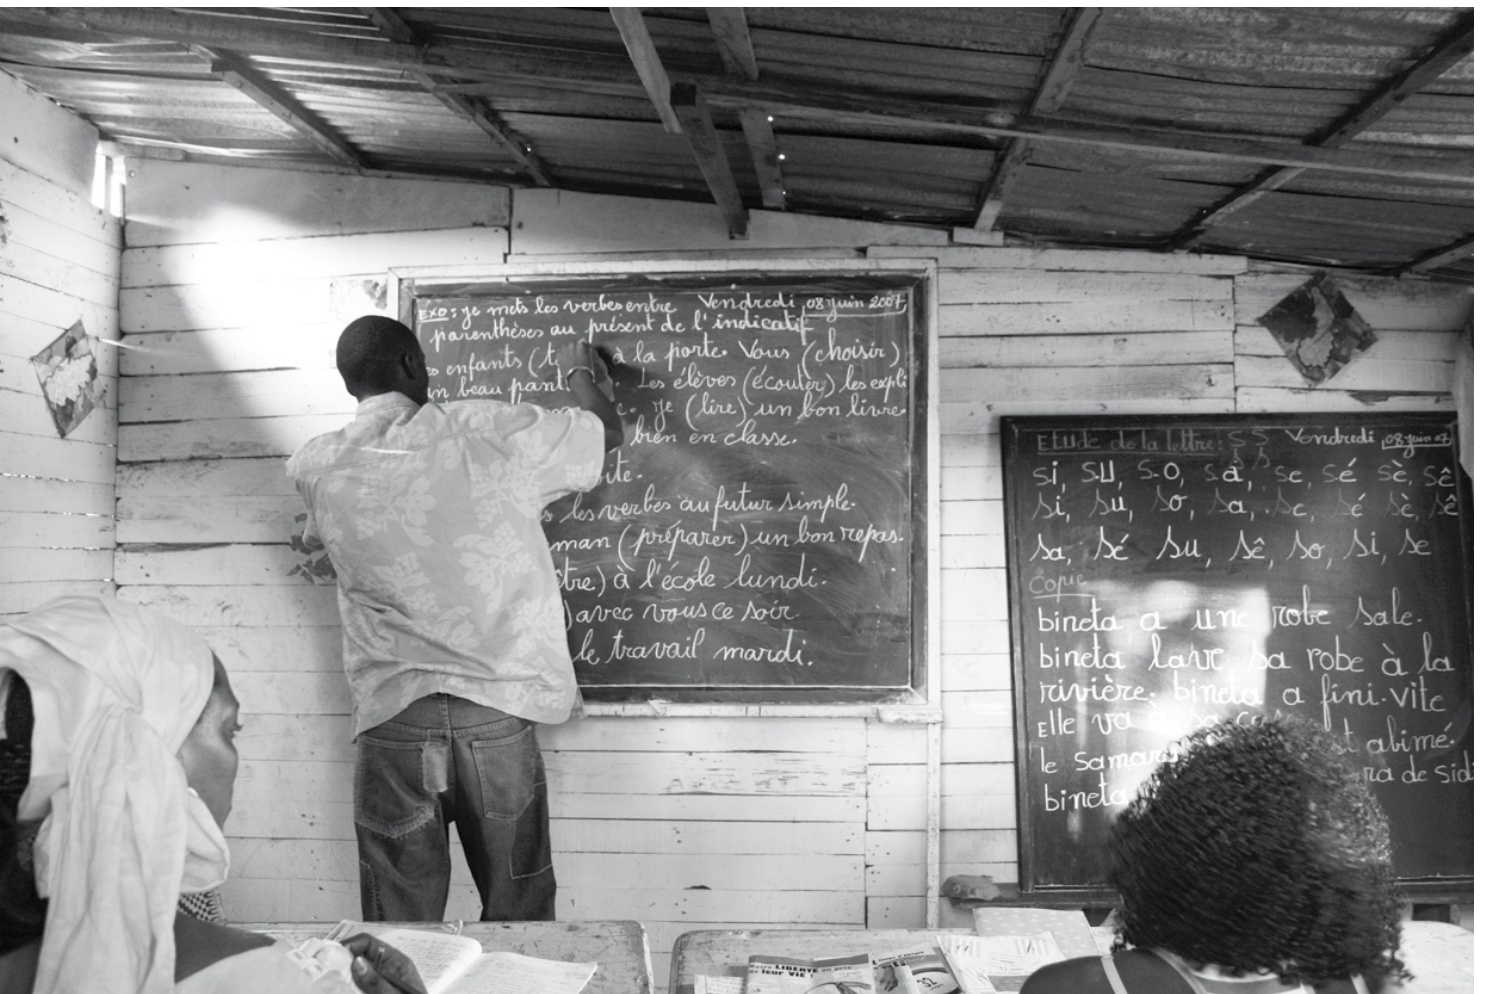 Exo: je mets les verbes entre Vendredi 08 juin 2007
parenthèses au présent de l'indicatif
enfants ( à la porte. Vous (choisir)
beau . Les élèves (écouter) les expli
. Je (lire) un bon livre.
bien en classe.
les verbes au futur simple.
man (préparer) un bon repas.
tre) à l'école lundi.
) avec vous ce soir
le travail mardi.
Etude de la lettre: S S Vendredi 08 juin 07
si, su, so, sa, se, sé sè, sê
si, su, so, sa, se, sé sè, sê
sa, sé su, sê, so, si, se
Copie
bineta a une robe sale.
bineta lave sa robe à la
rivière. bineta a fini. vite
Elle va à sa
le abimé.
bineta ra de Sidi
LIBERTE
leur VIE !